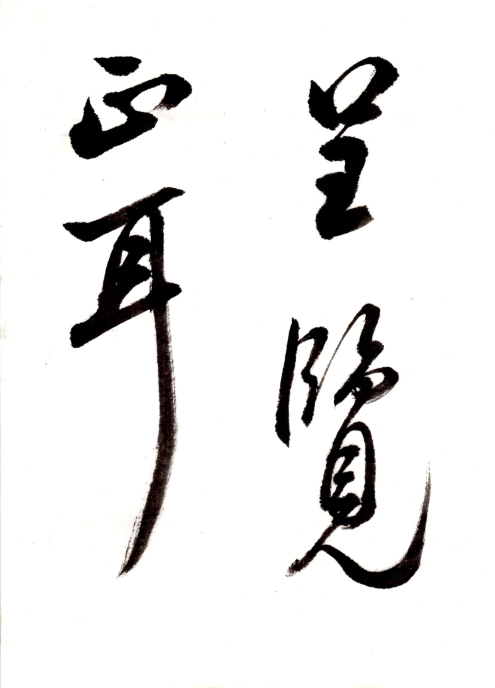 呈覽
正耳